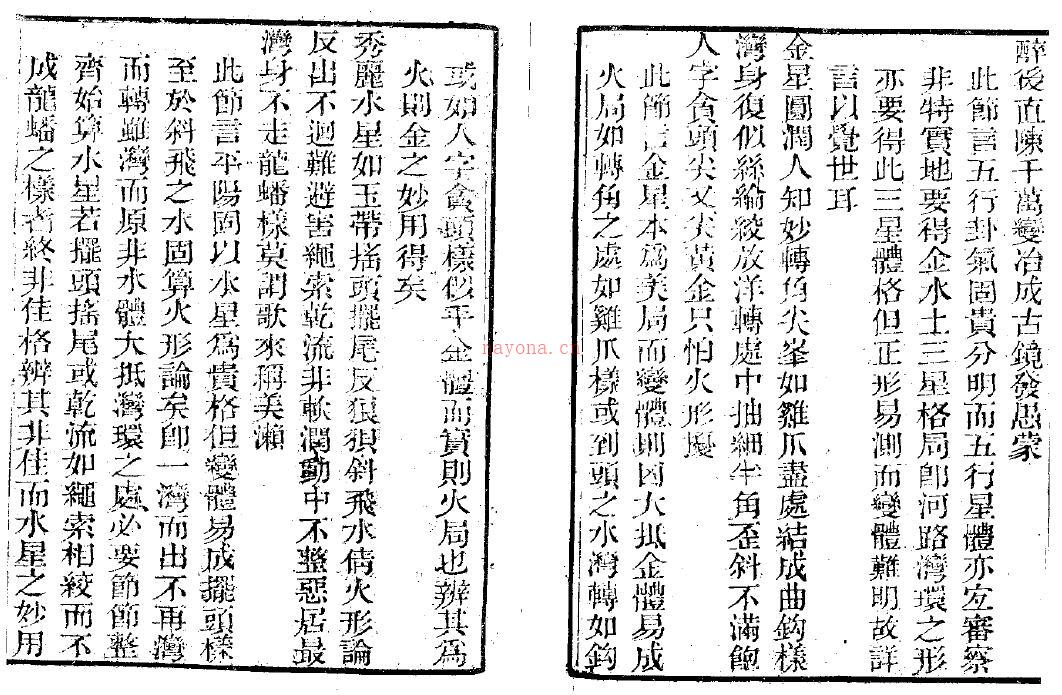 醉後直陳千萬變冶成古鏡發愚蒙
此節言五行卦氣固貴分明而五行星體亦宜審察
非特實地要得金水土三星格局卽河路灣環之形
亦要得此三星體格但正形易測而變體難明故詳
言以覺世耳
金星圓濶人知妙轉角尖峯如雞爪盡處結成曲鈎樣
灣身復似絲綸絞放洋轉處中抽細牛角歪斜不滿飽
人字貪頭尖又尖黃金只怕火形擾
此節言金星本爲美局而變體則凶大抵金體易成
火局如轉角之處如雞爪樣或到頭之水灣轉如鈎
或如人字貪頭樣似乎金體而實則火局也辨其爲
火則金之妙用得矣
秀麗水星如玉帶搖頭擺尾反狼狽斜飛水倩火形論
反出不迴難避害繩索乾流非軟濶動中不整惡居最
灣身不走龍蟠樣莫謂歌來稱美瀨
此節言平陽固以水星爲貴格但變體易成擺頭樣
至於斜飛之水固算火形論矣卽一灣而出不再灣
而轉雖灣而原非水體大抵灣環之處必要節節整
齊始算水星若擺頭搖尾或乾流如繩索相絞而不
成龍蟠之樣者終非佳格辨其非佳而水星之妙用
nayona.cn